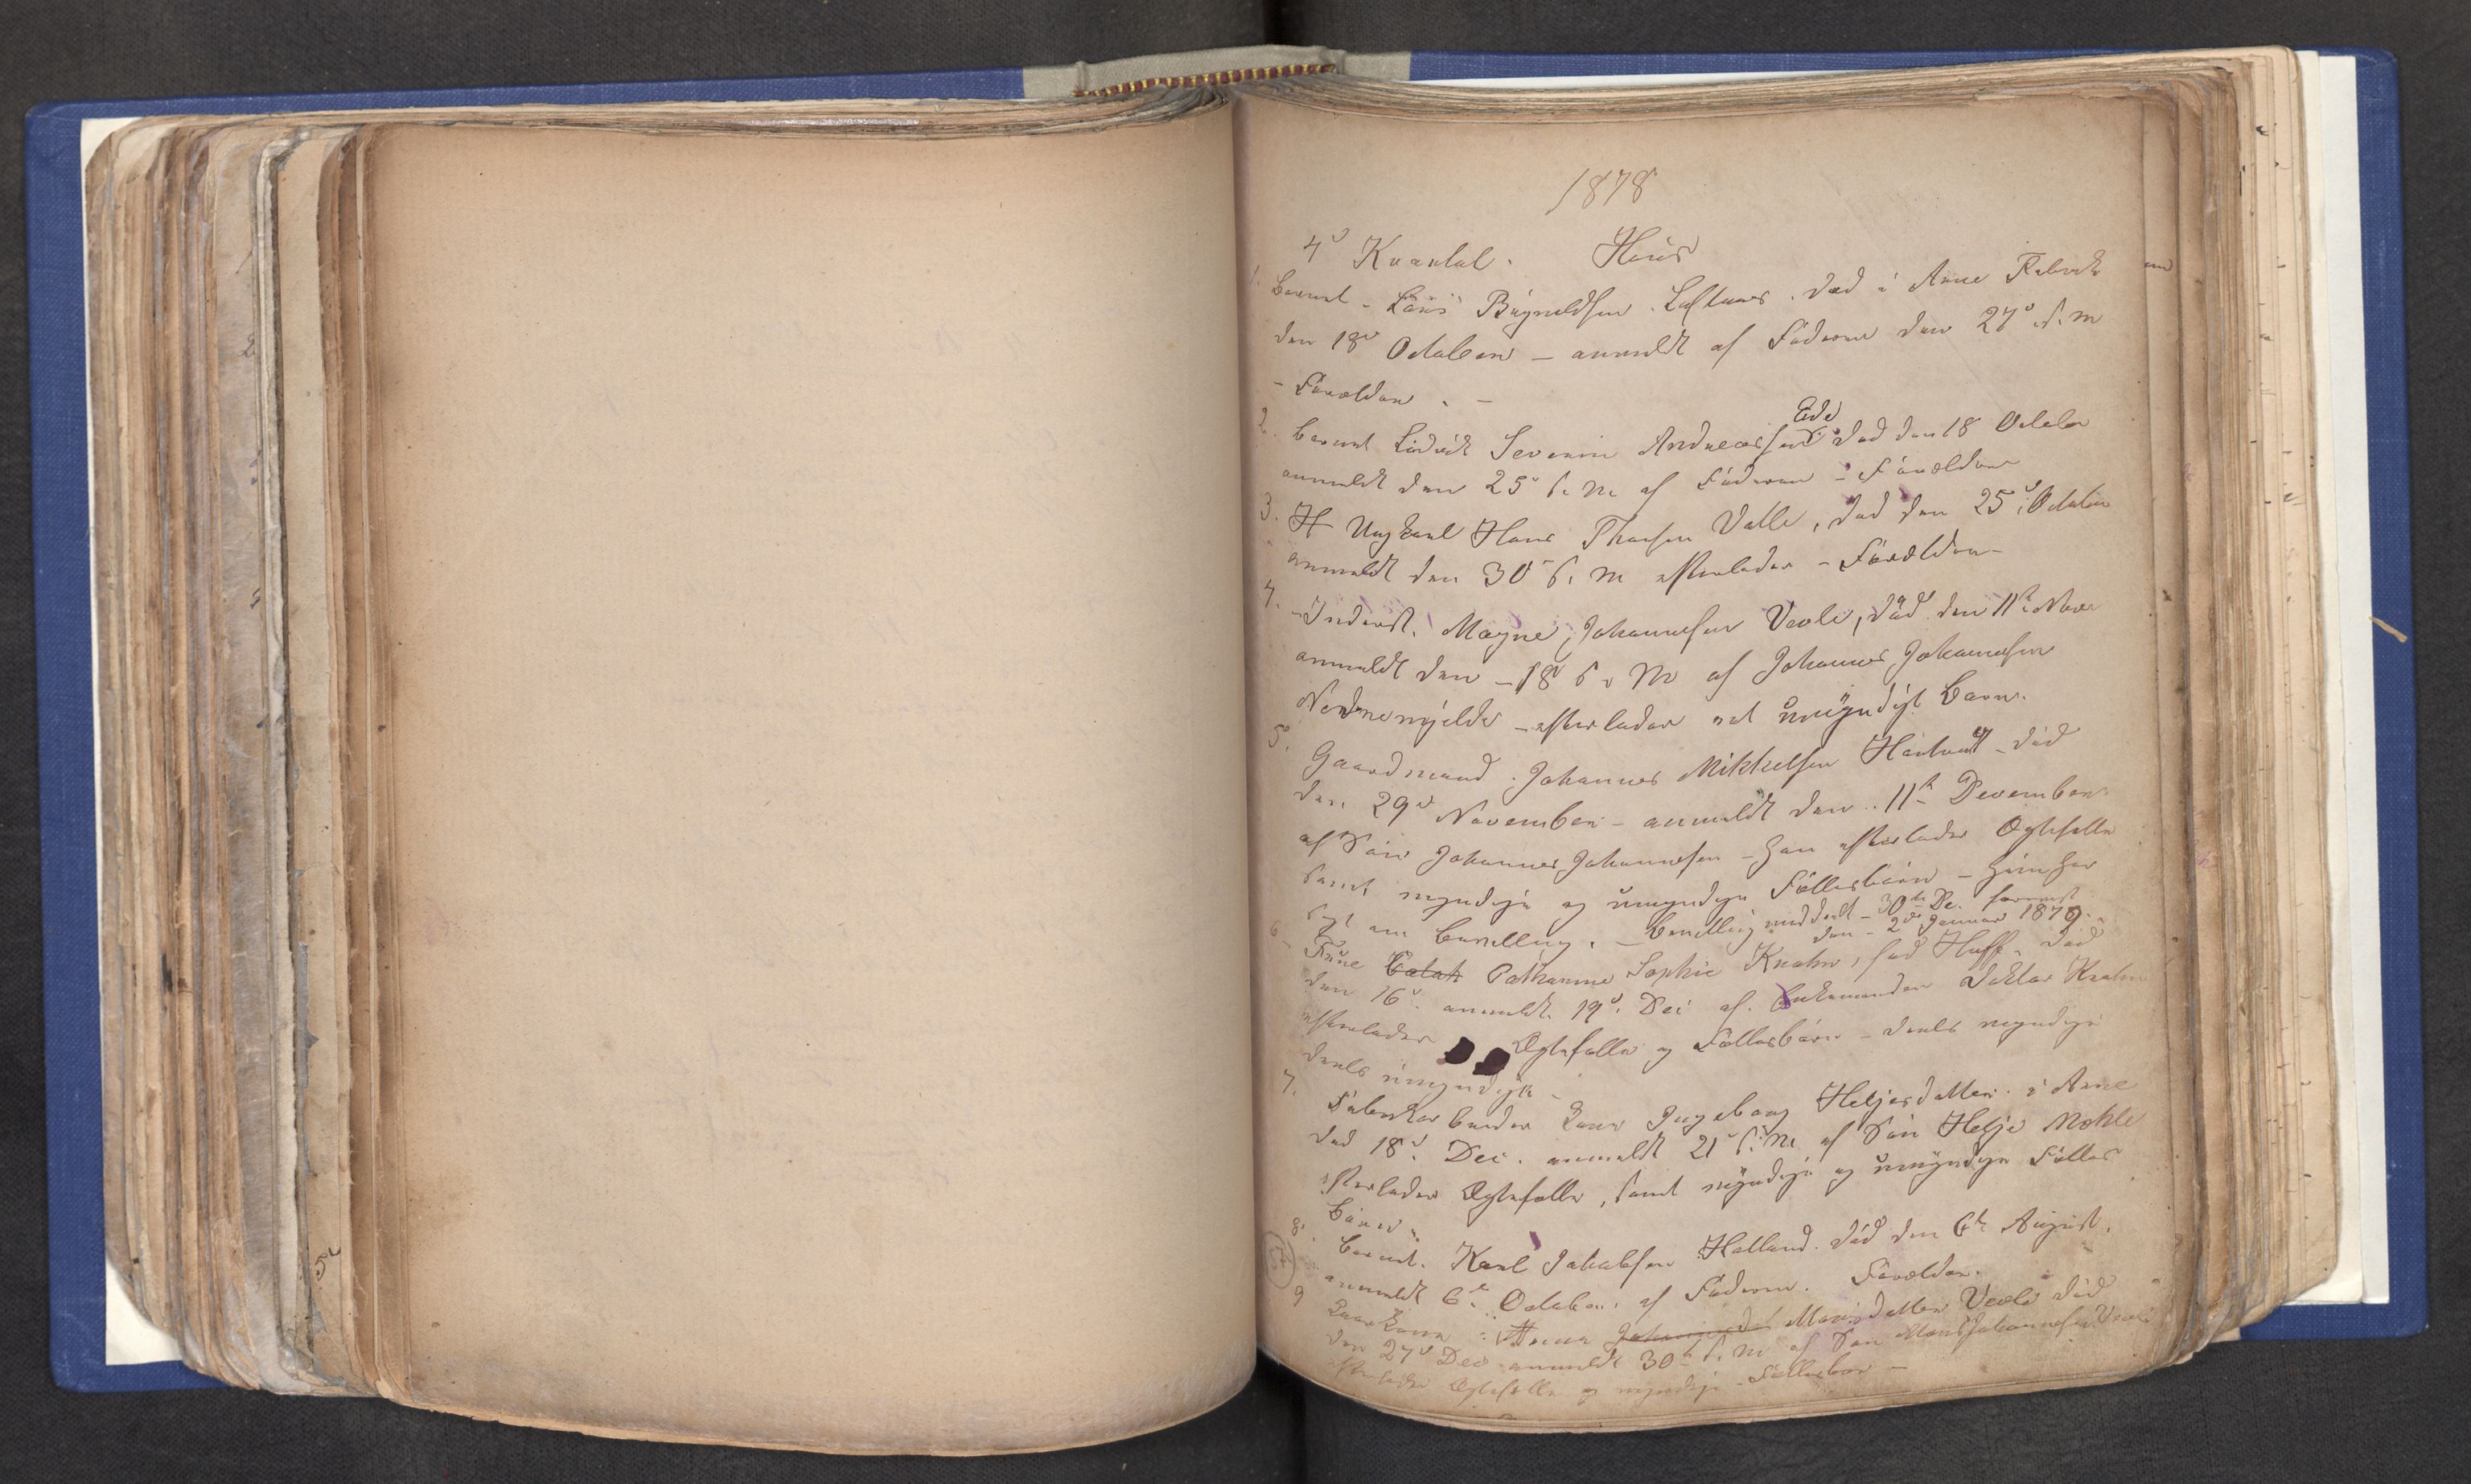 1878
4de Kvartal. Haus
1. Barnet - Lars Brynildsen. Loftaas. død i Arne Fabrik
den 18de October - anmeldt af Faderen den 27de s. M
- Forældre. -
2. Barnet Ludvik Severin Andreassen Eide død den 18 October
anmeldt den 25de s. M. af Faderen - Forældre
3. Ungkarl Hans Thorsen Valle, død den 25de October
anmeldt den 30de s. M efterlader - Forældre -
4. Inderst. Magne Johannesen Veole, død den 11te Nov
anmeldt den - 18de s. M af Johannes Johannesen
- efterlader et umyndigt Barn.
5. Gaardmand. Johannes Mikkelsen død
den 29de November - anmeldt den 11te December
af Søn Johannes Johannesen - han efterlader Ægtefelle
samt myndige og umyndige Fællesbørn - hun har
søgt om Bevilling. - Bevilling meddelt - 30te De.
den - 2den Januar 1879.
6 Frue Cathrinne Sophie Krohn, fød Hoff. død
den 16de anmeldt. 19de Dec af Enkemanden Doktor Krohn
efterlader Ægtefelle og Fællesbørn - deels myndige
deels umyndige -
7. Fabrikarbeider Kone Ingeborg Heljesdatter i Arne
død 18de Dec. anmeldt 21de s. M. af Søn Helje Mohle
efterlader Ægtefelle, samt myndige og umyndige Fælles
Børn.
8. Barnet. Karl Jakobsen Helland. død den 6te August.
54
anmeldt 6te October af Faderen. Forældre.
9 Kaarkone Anna Monsdatter Veole død
den 27de Dec anmeldt 30te s. M af Søn Mons Johannesen Veole
efterlader Ægtefelle og myndige Fællesbørn -
5